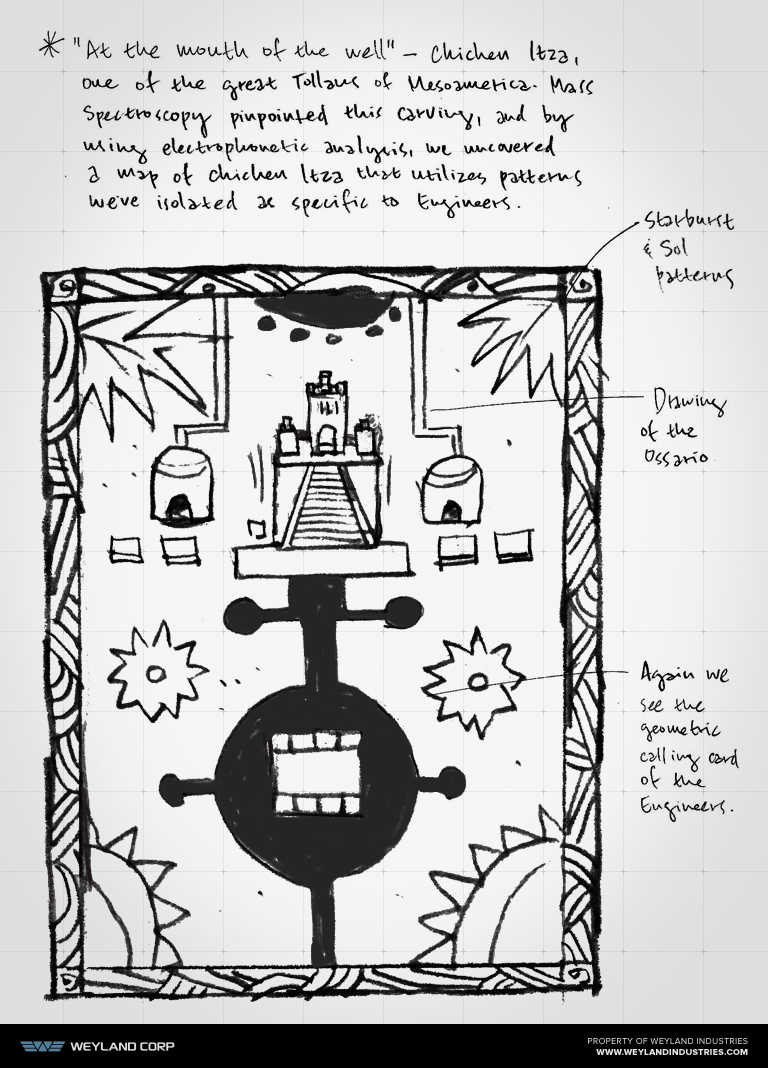 * "At the mouth of the well" – Chichen Itza,
one of the great Tollans of Mesoamerica. Mass
Spectroscopy pinpointed this carving, and by
using electrophonetic analysis, we uncovered
a map of chichen Itza that utilizes patterns
we've isolated as specific to Engineers.
Starburst
& Sol
patterns
Drawing
of the
Ossario
Again we
see the
geometric
calling card
of the
Engineers.
WEYLAND CORP
PROPERTY OF WEYLAND INDUSTRIES
WWW.WEYLANDINDUSTRIES.COM